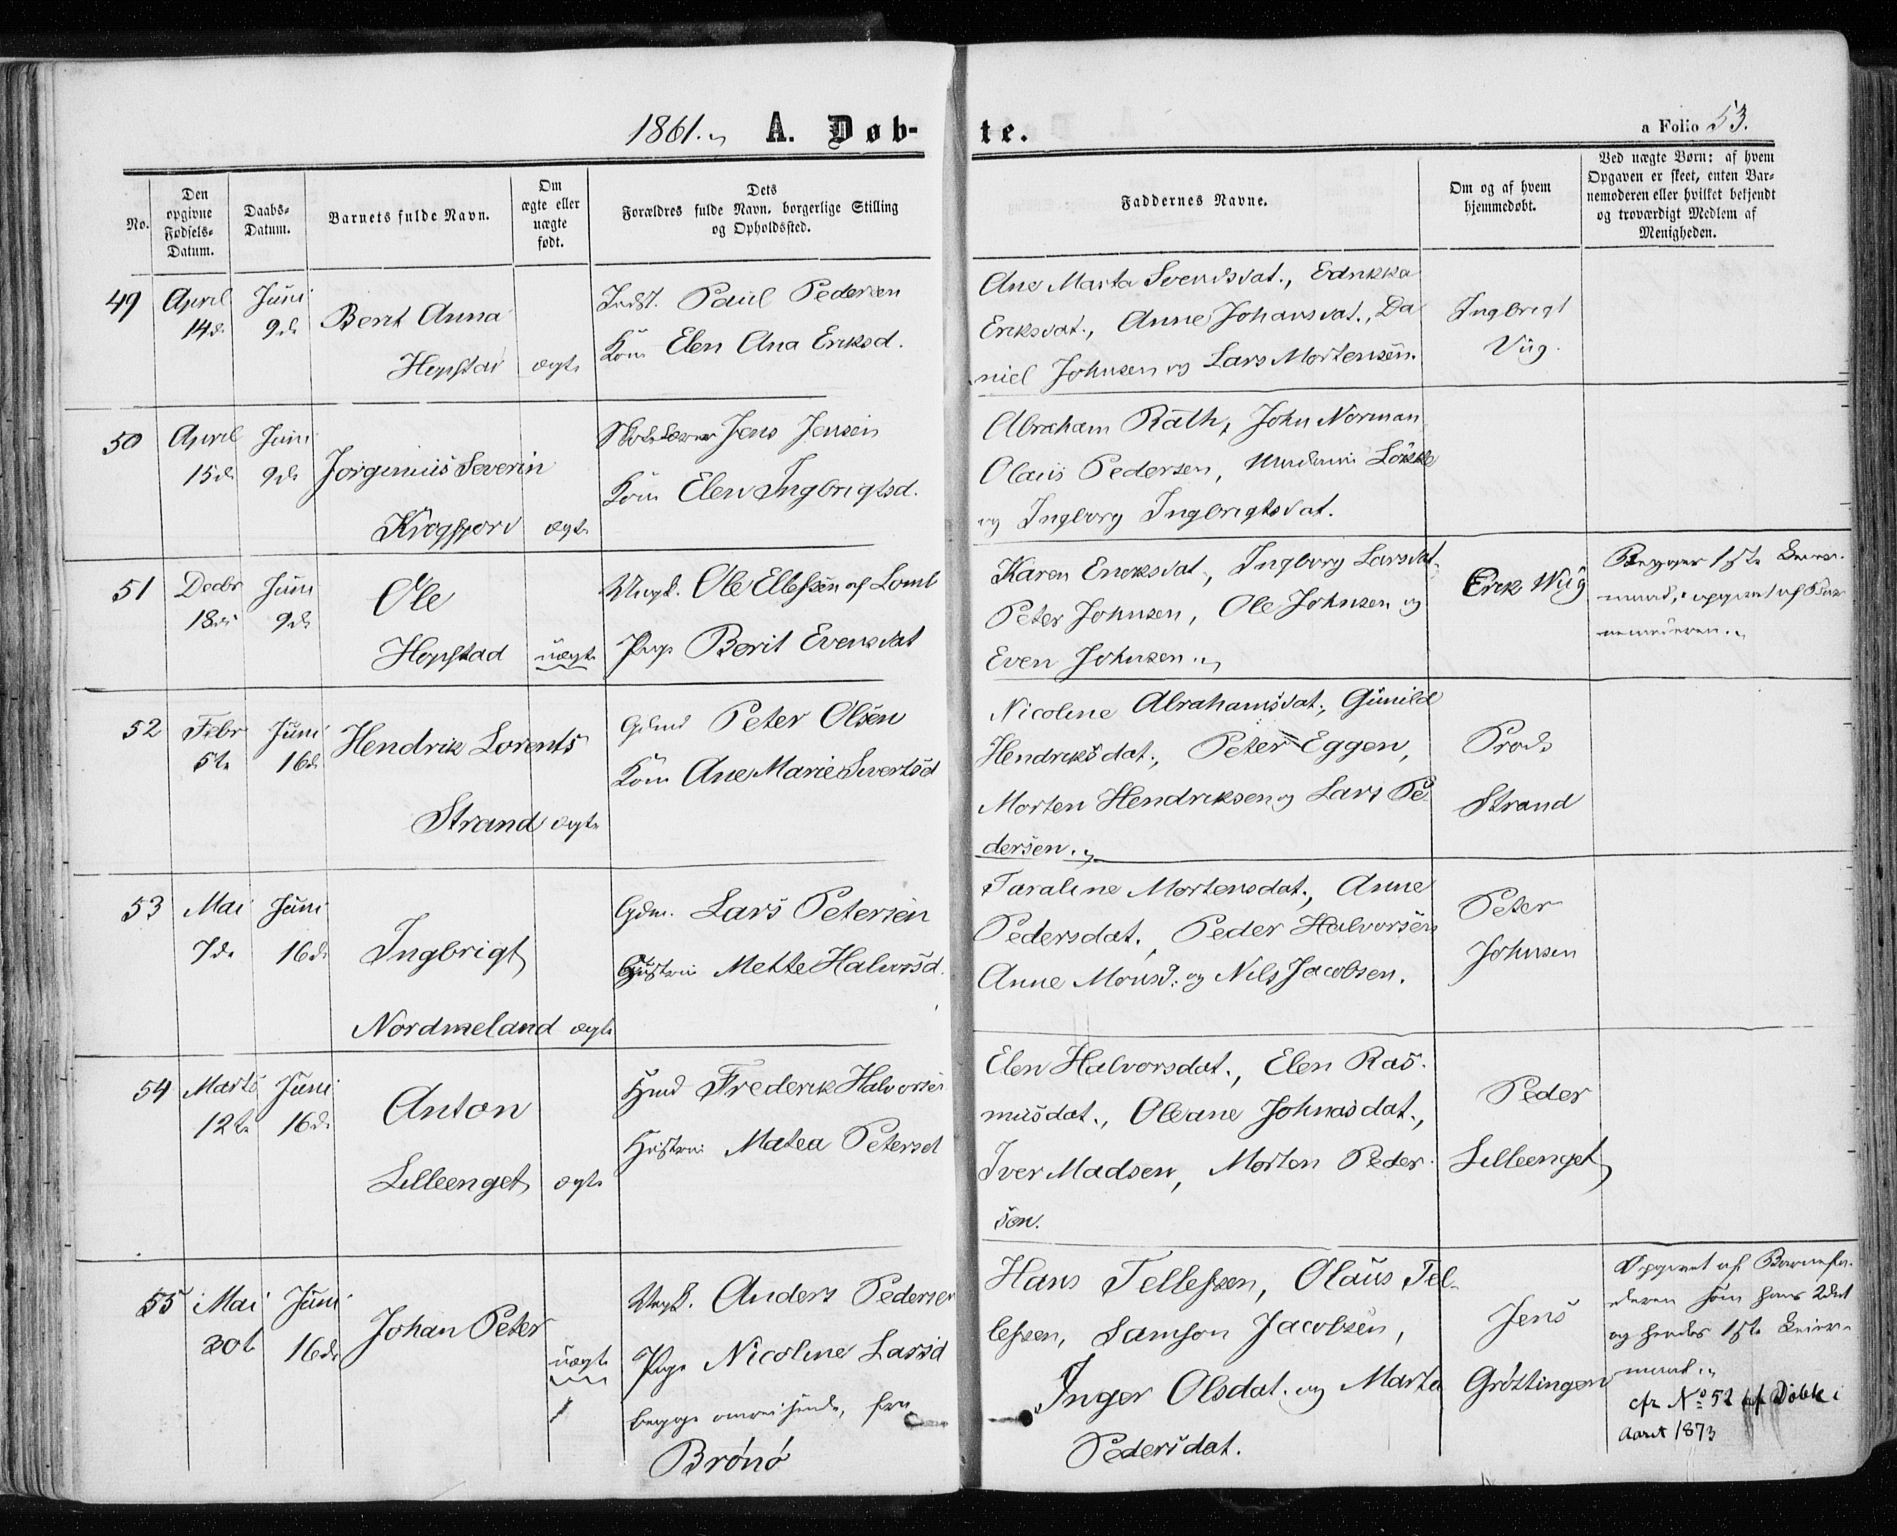 1861. A. Døb- te. a Folio 53.
No.
Den opgivne Fødsels-Datum.
Daabs-Datum.
Barnets fulde Navn.
Om ægte eller uægte født.
Dets Forældres fulde Navn, borgerlige Stilling og Opholdssted.
Faddernes Navne.
Om og af hvem hjemmedøbt.
Ved uægte Børn: af hvem Opgaven er skeet, enten Barnemoderen eller hvilket bekjendt og troværdigt Medlem af Menigheden.
49
April 14de
Juni 9de
Berit Anna
Hopstad
ægte
Indst. Paul Pedersen
Kone Elen Ana Eriksd.
Ane Marta Svendsdat.,
Eriksdat., Anne Johansdat., Da
niel Johnsen og Lars Mortensen.
Ingbrigt
Viig.
50
April 15de
Juni 9de
Jørginius Severin
Krogfjord
ægte
Skolelærer Jens Jensen
Kone Elen Ingbrigtsd.
Abraham Rath, John Norman
Olaus Pedersen, Madame
og Ingborg Ingbrigtsdat.
51
Decbr 18de
Juni 9de
Ole
Hopstad
uægte
Ungk. Ole Ellefsen af Lomb
Pige Berit Evensdat
Karen Eriksdat., Ingborg Larsdat.
Peter Johnsen, Ole Johnsen og
Even Johnsen.
Erik Wiig
Begges 1ste Leier-
maal, opgivet af Bar
nemoderen.
52
Febr 5te
Juni 16de
Hendrik Lorents
Strand
ægte
Gdmd Peter Olsen
Kone Ane Marie Sivertsd
Nicoline Abrahamsdat., Gunild
Hendriksdat., Peter Eggen,
Morten Hendriksen og Lars Pe-
dersen.
Prods
Strand
53
Mai 7de
Juni 16de
Ingbrigt
Nordmeland
ægte
Gdm. Lars Petersen
Hustrue Mette Halvorsd.
Taraline Mortensdat., Anne
Pedersdat., Peder Halvorsen
Anne Monsd. og Nils Jacobsen.
Peter
Johnsen
54
Marts 12te
Juni 16de
Anton
Lilleenget
ægte
Hmd Frederik Halvorsen
Hustrue Matea Petersd
Elen Halvorsdat., Elen Ras-
musdat., Oleane Johnasdat.,
Iver Madsen, Morten Peder-
sen.
Peder
Lilleenget
55
Mai 30te
Juni 16de
Johan Peter
uægte
Ungk. Anders Pedersen
Pige Nicoline Larsd
begge omreisende, fra
Brønø
Hans Tellefsen, Olaus Tel-
lefsen, Samson Jacobsen,
Inger Olsdat. og Marta
Pedersdat.
Jens
Grøttingen
Opgivet af Barnefa-
deren som hans 2det
og hendes 1ste Leier-
maal.
cfr No 52 af Døbte i
Aaret 1873